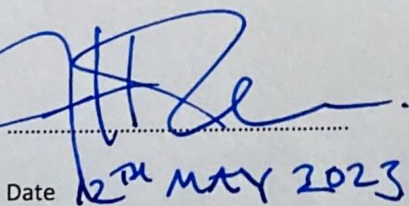 Date 12TH MAY 2023